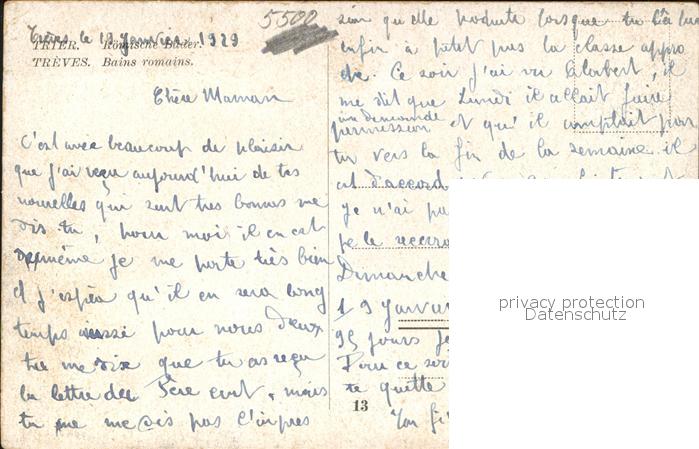 5500
Trèves le 19 Janvier 1929
TRIER. Römische Bäder.
TRÈVES. Bains romains.
Chère Maman
C'est avec beaucoup de plaisir
que j'ai reçu aujourd'hui de tes
nouelles qui sont tres bonnes me
dis tu, pour moi il en est
de même je me porte très bien
et j'espèr qu'il en sera long
temps aussi pour nous deux
tu me dis que tu as reçu
la lettre du 5eme, mais
tu me me dis pas l'impres
sion qu'elle produite lorsque tu
enfin à petit pas la classe appro
che. Ce soir j'ai vu il
me dit que Lundi il allait faire
sa demande
permission et qu'il comptait par
tir vers la fin de la semaine il
est d'accord
je n'ai pa
je le
Dimanche
19 Janvier
95 jours
Pour ce soir
te quitte
Ton fi
13
privacy protection
Datenschutz